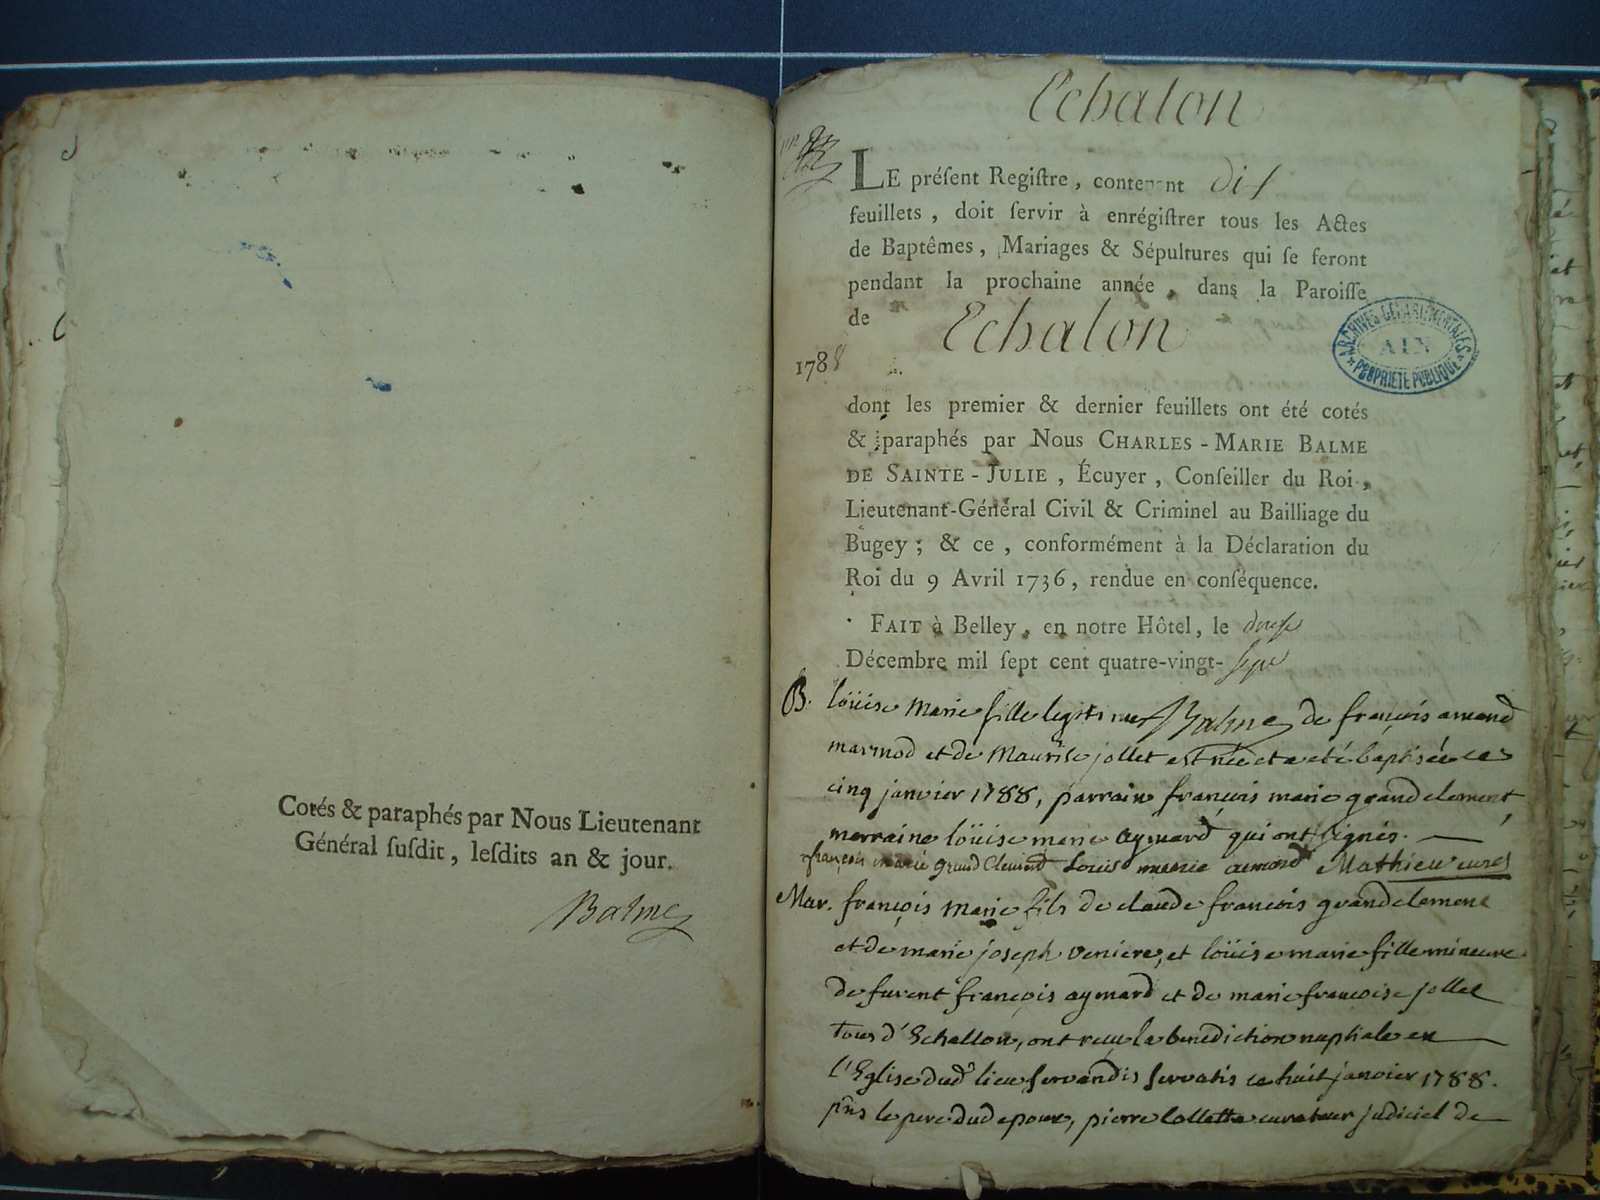 Cotés & paraphés par Nous Lieutenant
Général ſuſdit, leſdits an & jour.
Balme
Echalon
LE préſent Regiſtre, contenant dix
feuillets, doit ſervir à enrégiſtrer tous les Actes
de Baptêmes, Mariages & Sépultures qui ſe feront
pendant la prochaine année, dans la Paroiſſe
de Echalon
1788
ARCHIVES DÉPARTEMENTALES
AIN
PROPRIÉTÉ PUBLIQUE
dont les premier & dernier feuillets ont été cotés
& paraphés par Nous CHARLES-MARIE BALME
DE SAINTE-JULIE, Écuyer, Conſeiller du Roi,
Lieutenant-Général Civil & Criminel au Bailliage du
Bugey; & ce, conformément à la Déclaration du
Roi du 9 Avril 1736, rendue en conſéquence.
FAIT à Belley, en notre Hôtel, le douze
Décembre mil ſept cent quatre-vingt-ſept
Balme
B. loüise marie fille legitime de françois amend
marmod et de Maurise jollet est née et a eté baptisée le
cinq janvier 1788, parrain françois marie grandclement,
marraine loüise marie aymard qui ont signés.
françois marie grand Clement Louise marie aimard Mathieu curé
Mar. françois marie fils de claude françois grandclement
et de marie joseph veniere, et loüise marie fille mineure
de furent françois aymard et de marie francoise jollet
tous d'Echallon, ont reçu la benediction nuptiale en
l'Eglise dud lieu servandis servatis le huit janvier 1788.
pñs le pere dud epoux, pierre Collette curateur judiciel de